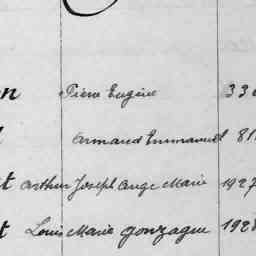 on Pierre Eugène 33
Armand Emmanuel 81
t Arthur Joseph Ange Marie 1927
t Louis Marie Gonzague 1928